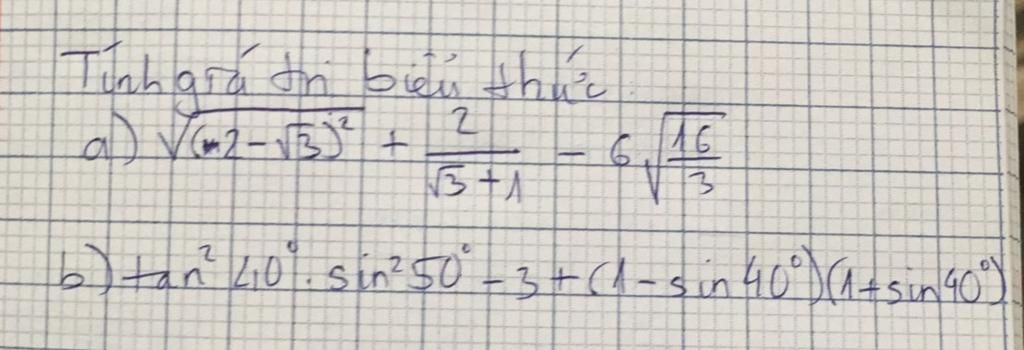 Tính giá trị biểu thức.
a) √(-2-√3)² + 2/(√3+1) - 6√(16/3)
b) tan² 40°. sin² 50° - 3 + (1 - sin 40°)(1+sin 40°)